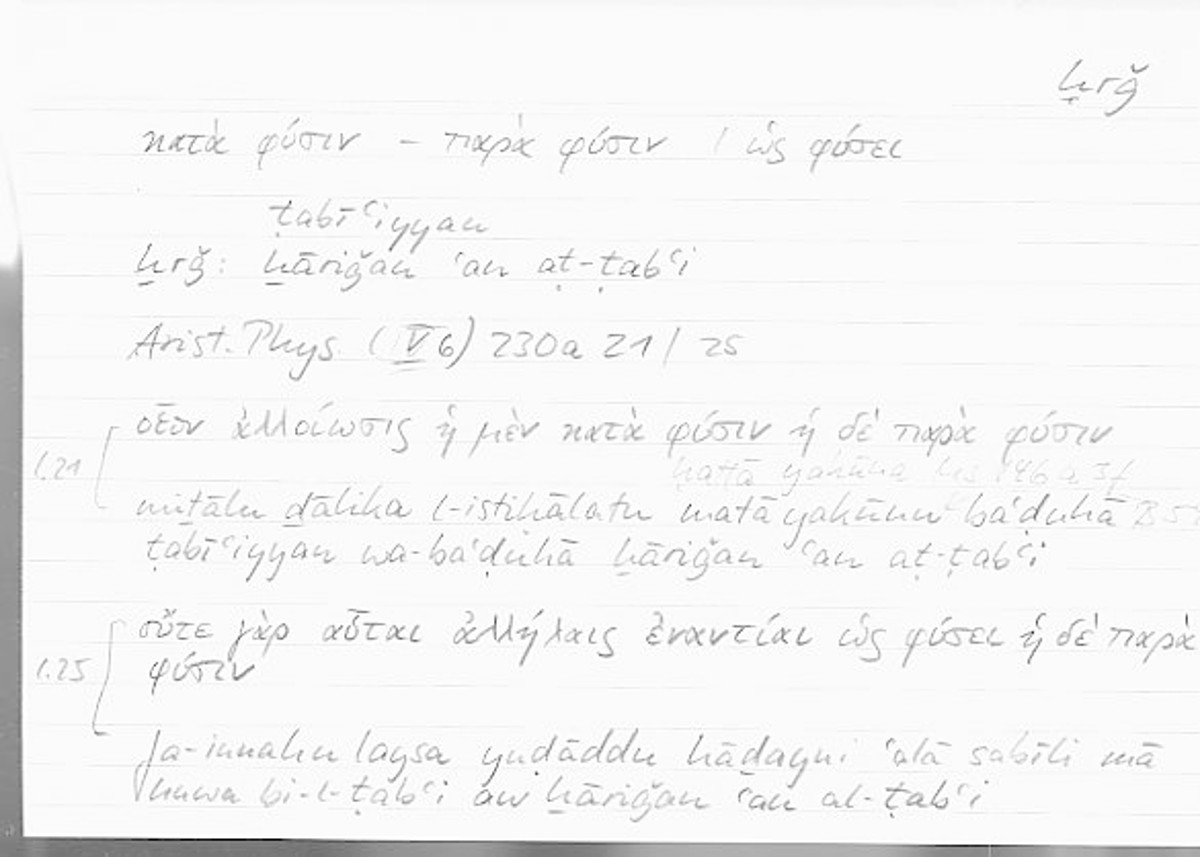 ḫrǧ
κατὰ φύσιν – παρὰ φύσιν / ὡς φύσει
ṭabīʿiyyan
ḫrǧ: ḫāriǧan ʿan aṭ-ṭabʿi
Arist. Phys. (V 6) 230a 21 / 25
οἷον ἀλλοίωσις ἡ μὲν κατὰ φύσιν ἡ δὲ παρὰ φύσιν
ḥattā yakūna
l.21
miṯālu ḏālika l-istiḥālatu matā yakūnu baʿḍuhā
ṭabīʿiyyan wa-baʿḍuhā ḫāriǧan ʿan aṭ-ṭabʿi
οὔτε γὰρ αὗται ἀλλήλαις ἐναντίαι ὡς φύσει ἡ δὲ παρὰ
l.25
φύσιν
fa-innahu laysa yuḍāddu hāḏayni ʿalā sabīli mā
huwa bi-l-ṭabʿi aw ḫāriǧan ʿan al-ṭabʿi